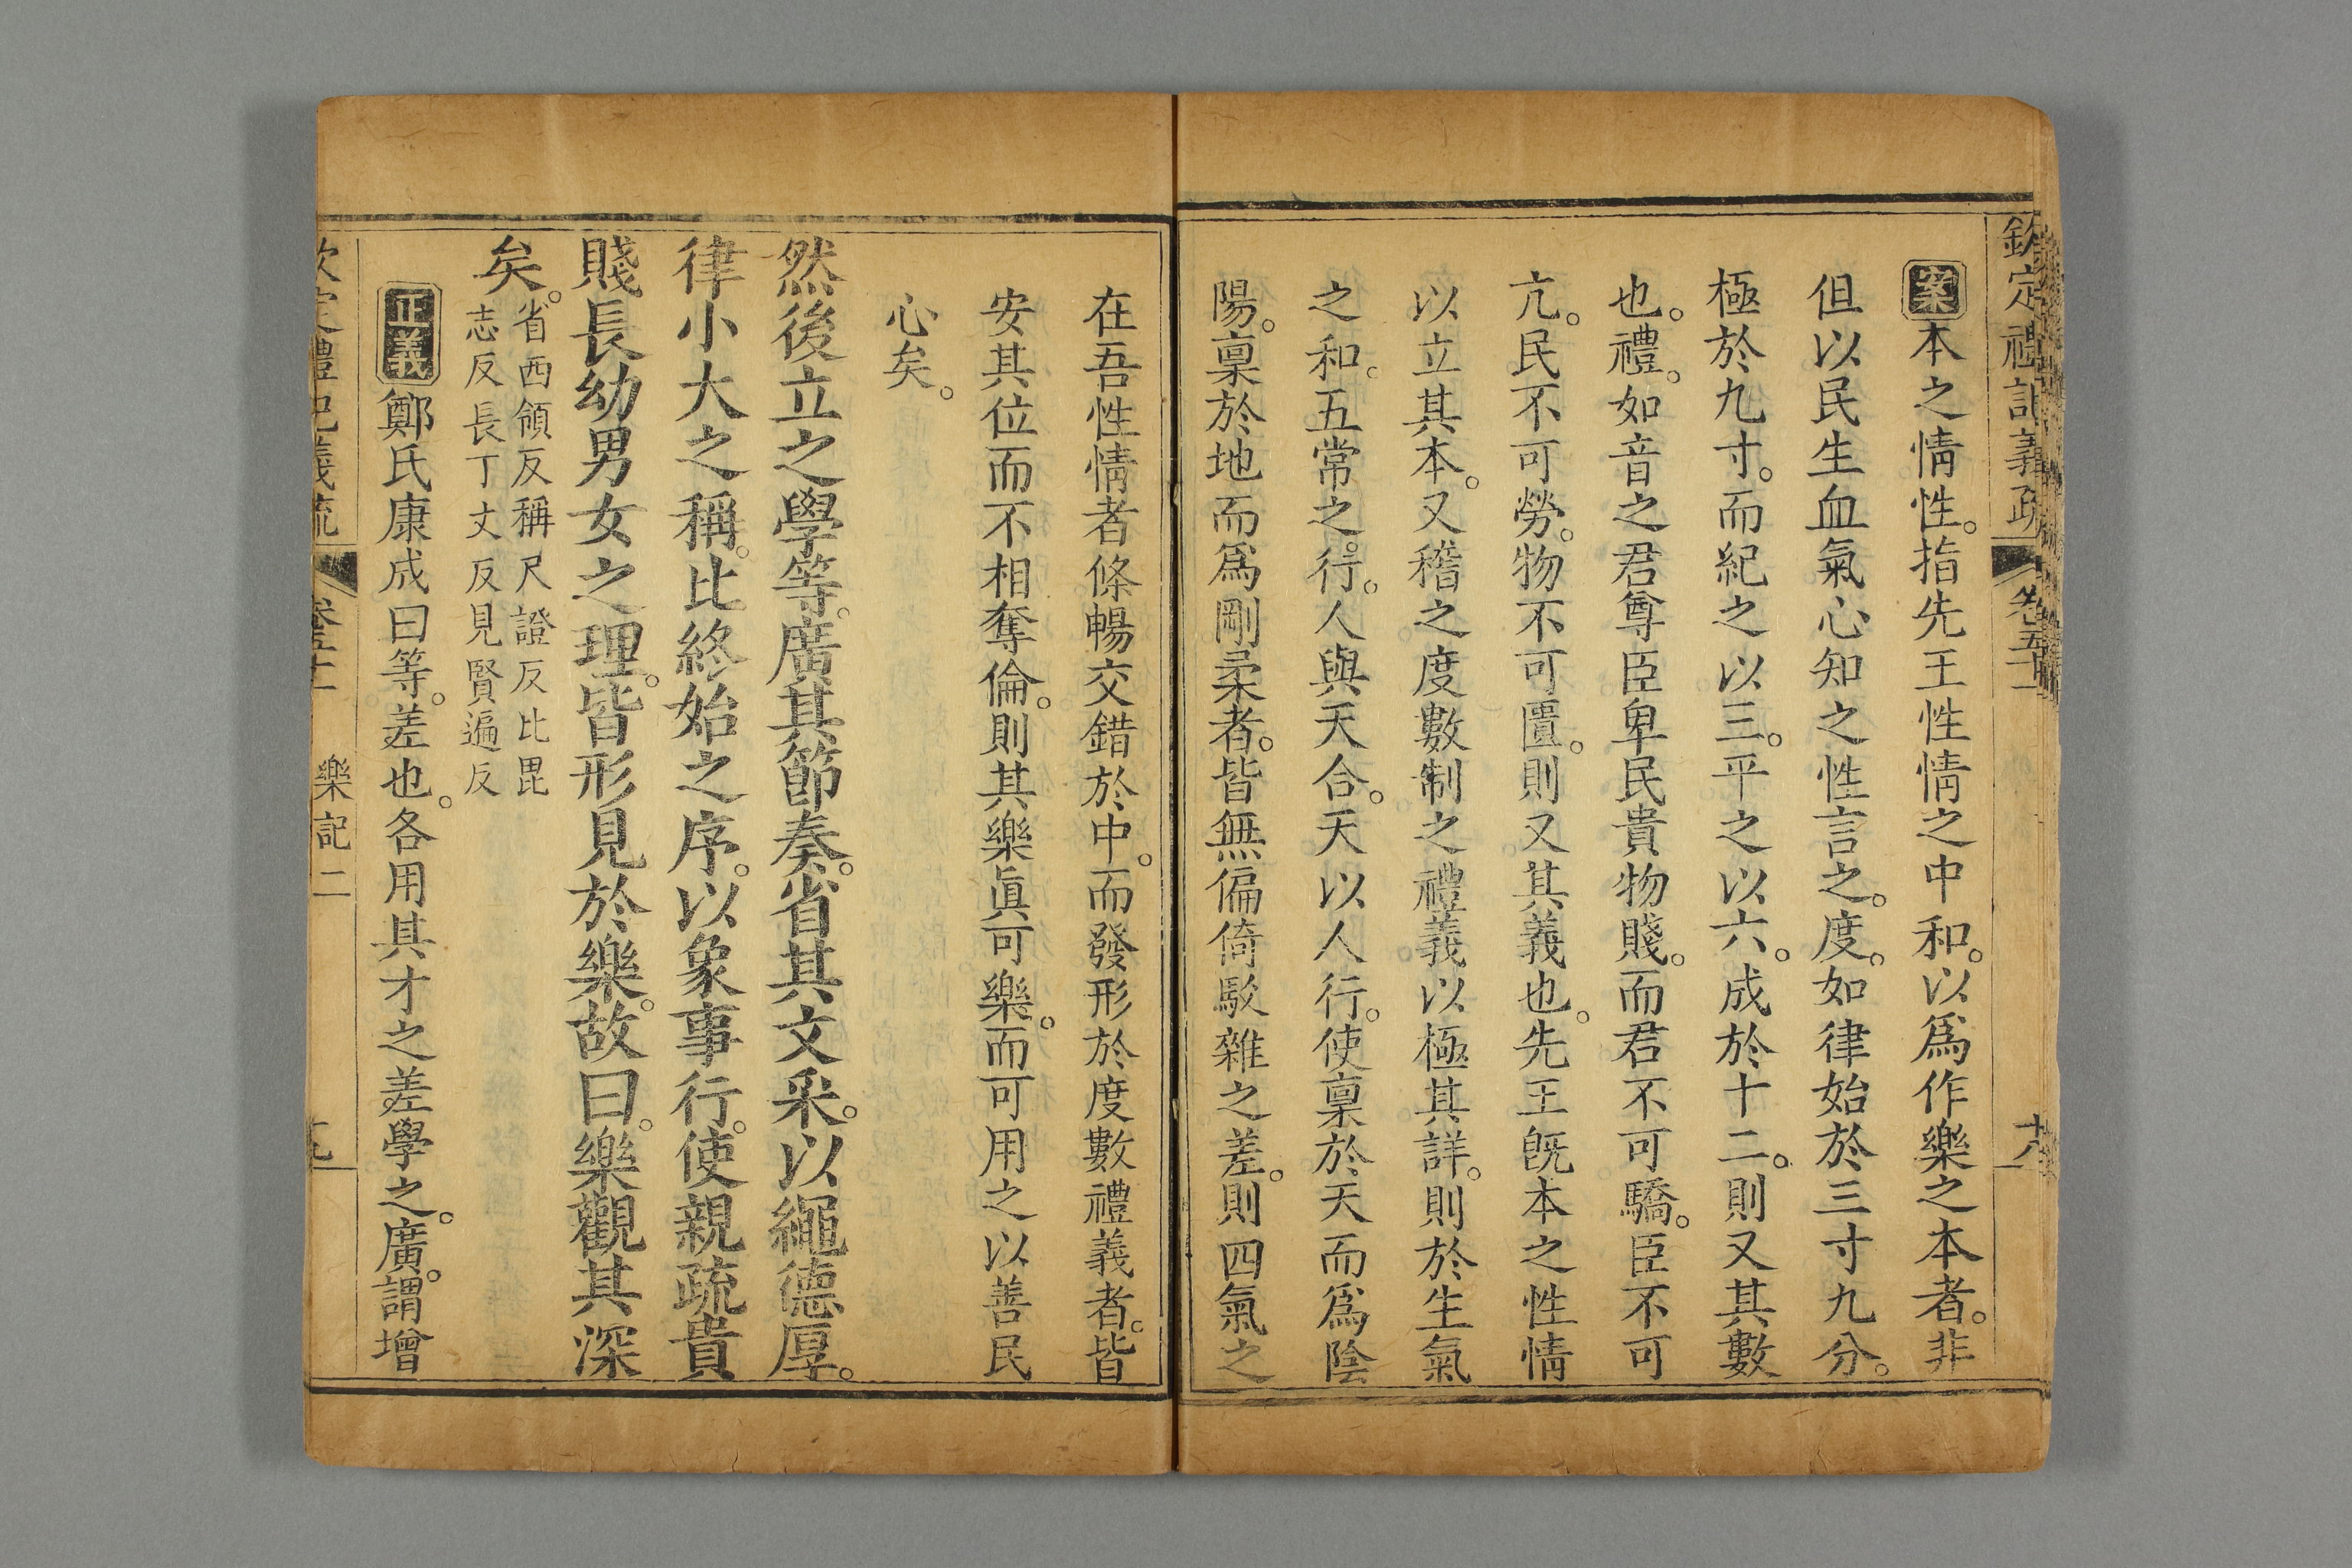 欽定禮記義疏 卷五十一 十八
案本之情性。指先王性情之中和。以爲作樂之本者。非
但以民生血氣心知之性言之。度。如律始於三寸九分。
極於九寸。而紀之以三。平之以六。成於十二。則又其數
也。禮。如音之君尊臣卑民貴物賤。而君不可驕。臣不可
亢。民不可勞。物不可匱。則又其義也。先王旣本之性情
以立其本。又稽之度數制之禮義以極其詳。則於生氣
之和。五常之。行。人與天合。天以人行。使稟於天而爲陰
陽。稟於地而爲剛柔者。皆無偏倚駁雜之差。則四氣之
在吾性情者條暢交錯於中。而發形於度數禮義者。皆
安其位而不相奪倫。則其樂眞可樂。而可用之以善民
心矣。
然後立之學等。廣其節奏。省其文采。以繩德厚。
律小大之稱。比終始之序。以象事行。使親疏貴
賤長幼男女之理。皆形見於樂。故曰。樂觀其深
矣。省西領反稱尺證反比毘
志反長丁丈反見賢遍反
正義鄭氏康成曰等。差也。各用其才之差學之。廣。謂增
欽定禮記義疏 卷五十一 樂記二 十九